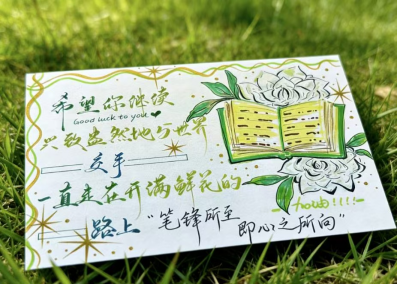 希望你继续
Good luck to you
兴致盎然地与世界
交手
一直走在开满鲜花的
路上
"笔锋所至
即心之所向"